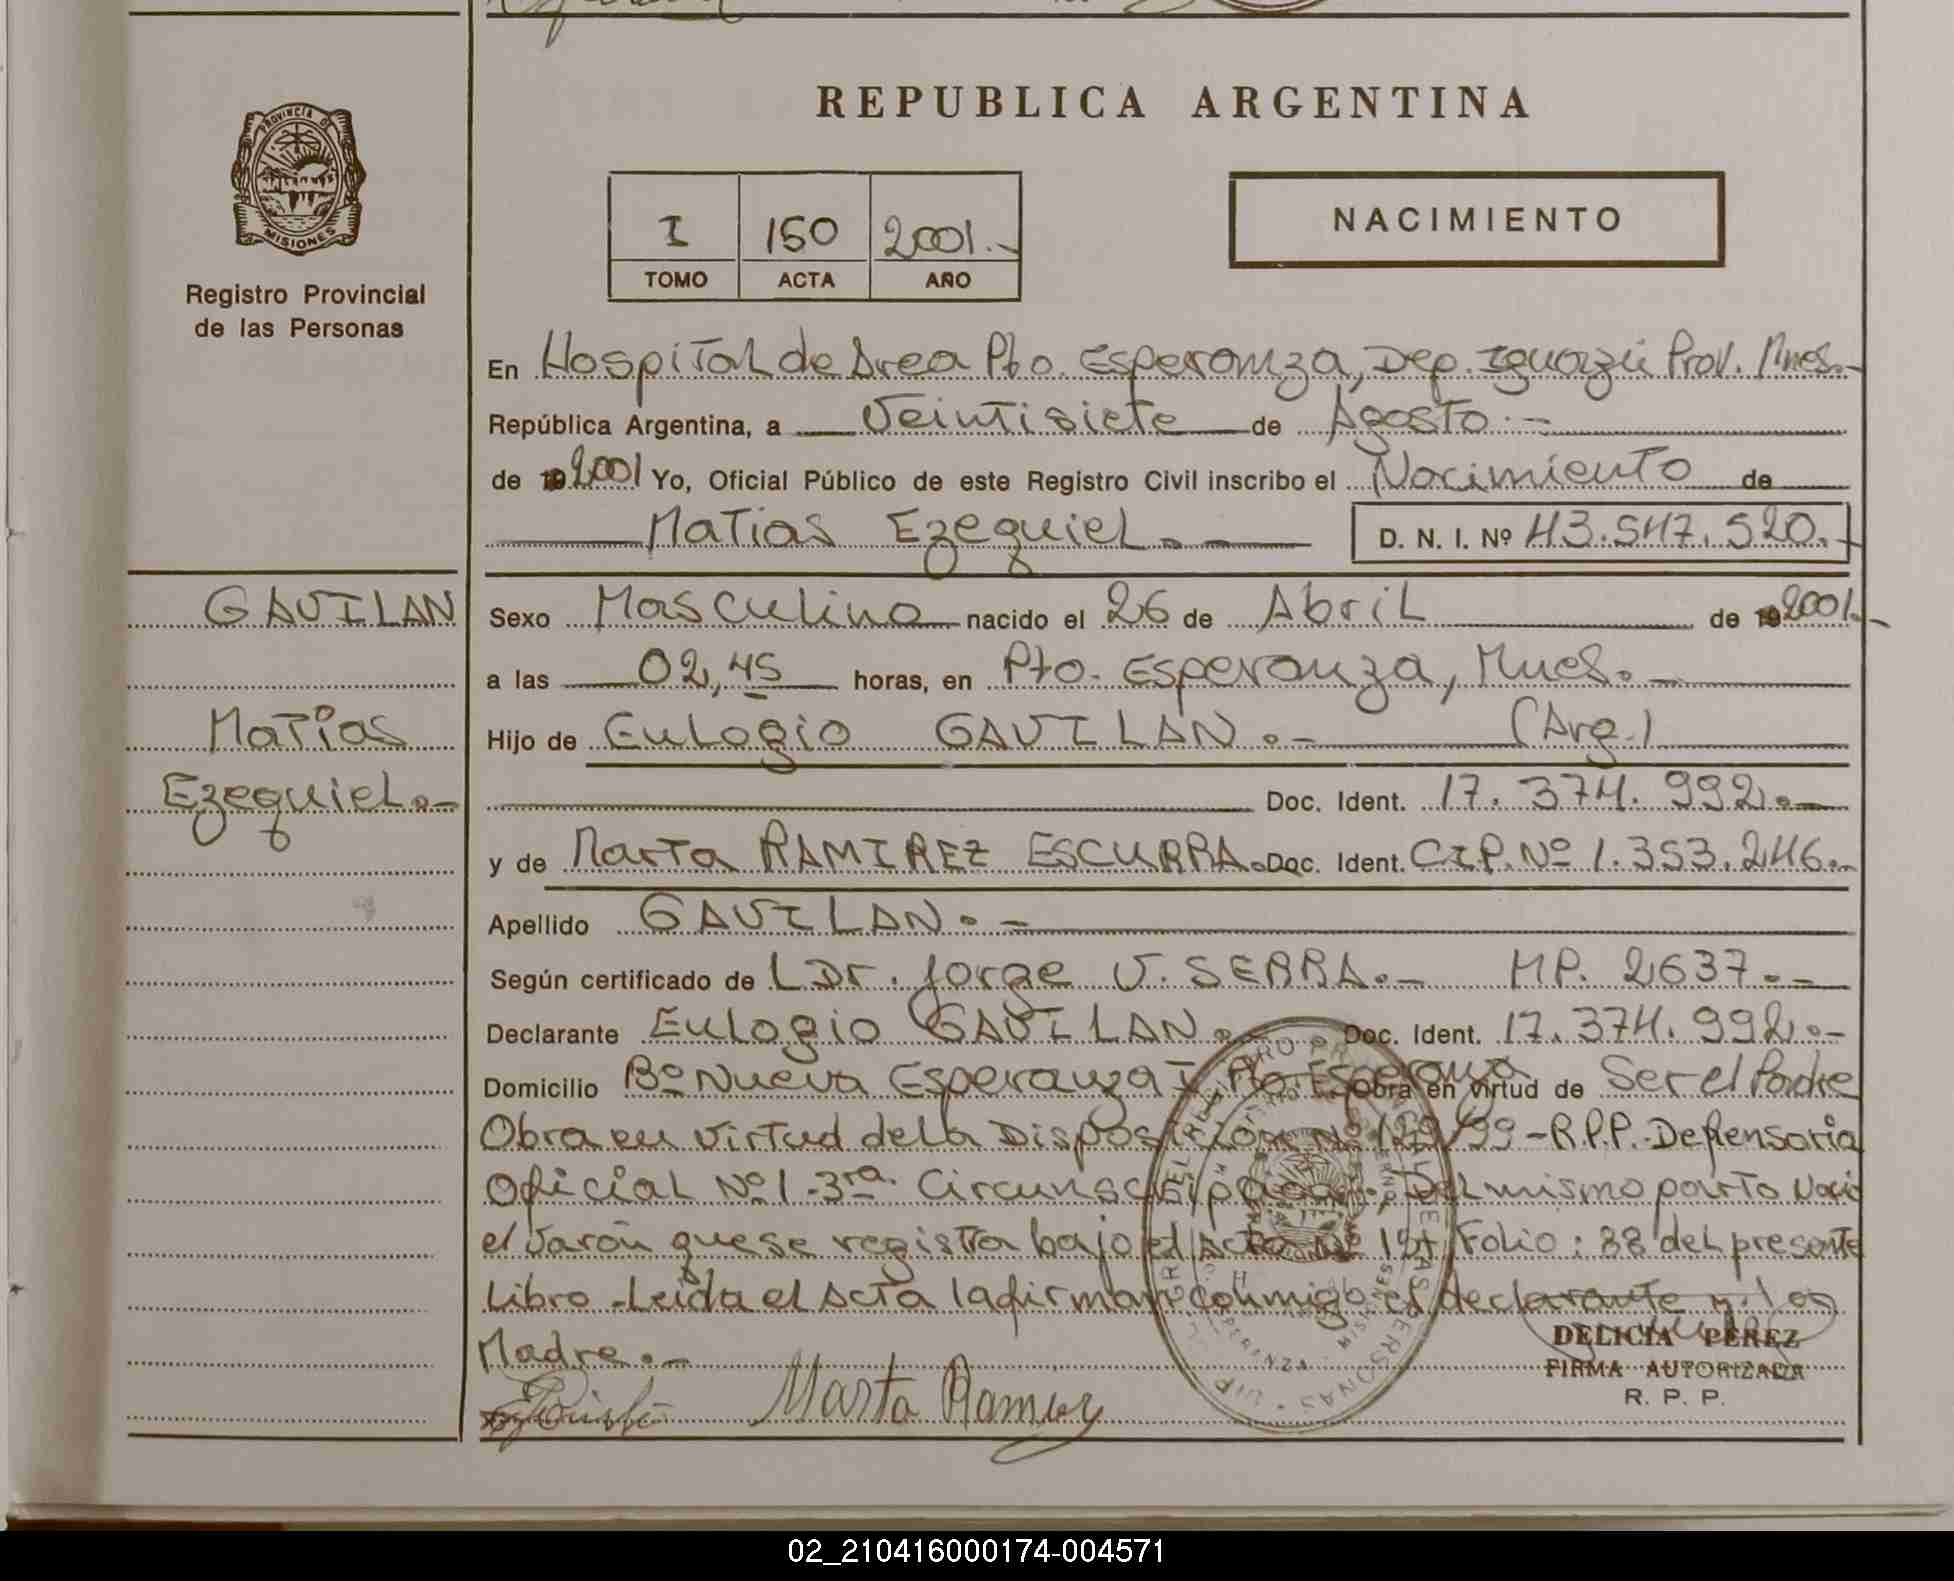 REPUBLICA ARGENTINA
PROVINCIA DE
MISIONES
Registro Provincial
de las Personas
I 150 2001.-
TOMO ACTA AÑO
NACIMIENTO
En Hospital de Area Pto. Esperanza, Dep. Iguazú Prov. Mnes.-
República Argentina, a Veintisiete de Agosto.-
de 19 2001 Yo, Oficial Público de este Registro Civil inscribo el Nacimiento de
Matias Ezequiel.- D. N. I. Nº 43.547.520.-
GAVILAN
Matias
Ezequiel.-
Sexo Masculino nacido el 26 de Abril de 19 2001.-
a las 02,45 horas, en Pto. Esperanza, Mnes.-
Hijo de Eulogio GAVILAN.- (Arg.)
Doc. Ident. 17.374.992.-
y de Marta RAMIREZ ESCURRA. Doc. Ident. C.I.P. Nº 1.353.246.-
Apellido GAVILAN.-
Según certificado de L Dr. Jorge V. SERRA.- MP. 2637.-
Declarante Eulogio GAVILAN. Doc. Ident. 17.374.992.-
Domicilio Bº Nueva Esperanza I Pto. Esperanza Obra en virtud de Ser el Padre
Obra en virtud de la Disposicion Nº /99 - R.P.P. Defensoria
Oficial Nº 1 - 3ra. Circunscripcion. Del mismo parto Nació
el Varón que se registra bajo el Acta Nº Folio: del presente
Libro - Leida el Acta la firman conmigo el declarante y
Madre.-
Marta Ramirez
DELICIA PEREZ
FIRMA AUTORIZADA
R. P. P.
02_210416000174-004571